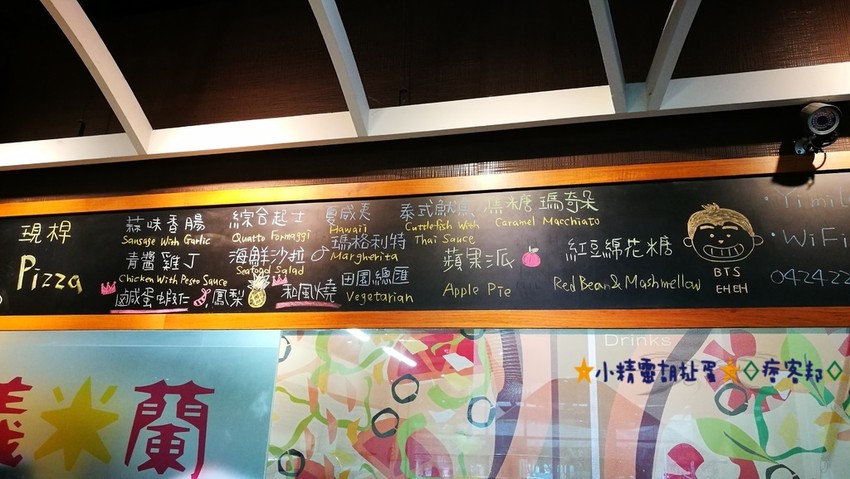 現桿
Pizza
蒜味香腸
Sausage With Garlic
青醬雞丁
Chicken With Pesto Sauce
鹹蛋蝦仁
鳳梨
綜合起士
Quatto Formaggi
海鮮沙拉
Seafood Salad
和風燒
夏威夷
Hawaii
瑪格利特
Margherita
田園總匯
Vegetarian
泰式魷魚
Cuttlefish With
Thai Sauce
蘋果派
Apple Pie
焦糖瑪奇朵
Caramel Macchiato
紅豆綿花糖
Red Bean & Mashmellow
BTS
EHEH
WiFi
042422
Drinks
義 蘭
小精靈胡扯蛋 痞客邦